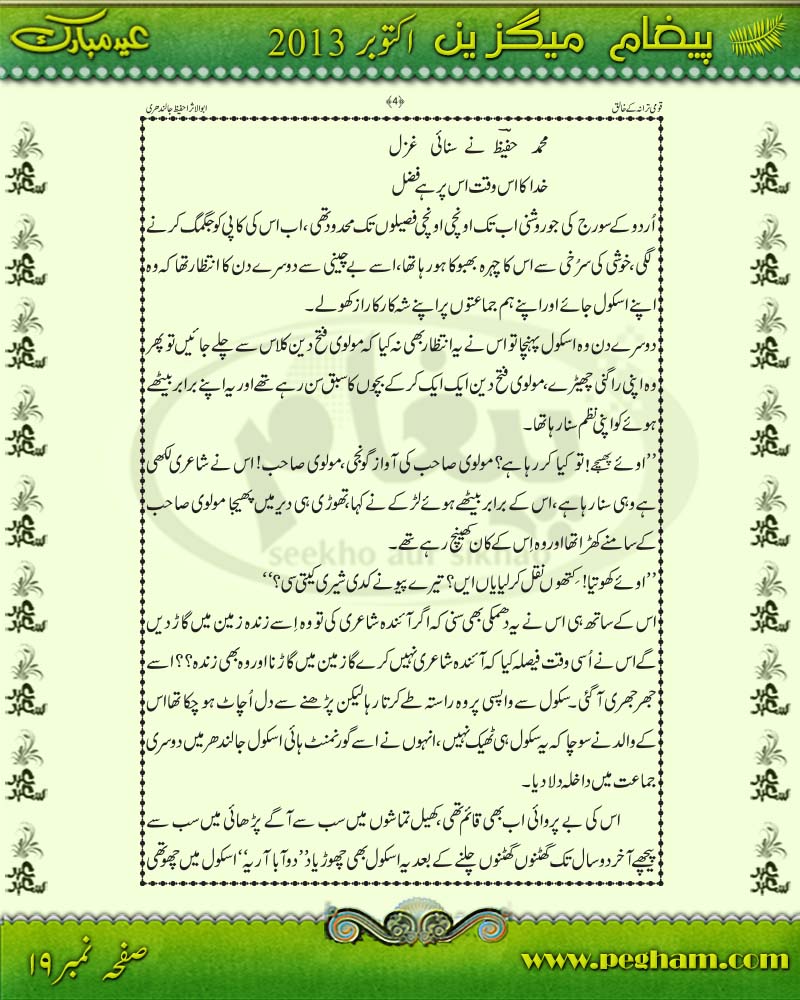 پیغام میگزین اکتوبر 2013
عید مبارک
قومی ترانہ کے خالق
﴿4﴾
ابوالاثر احفیظ جالندھری
محمد حفیظؔ نے سنائی غزل
خدا کا اس وقت اس پر ہے فضل
اُردو کے سورج کی جو روشنی اب تک اونچی اونچی فصیلوں تک محدود تھی، اب اس کی کاپی کو جگمگ کرنے
لگی، خوشی کی سرُخی سے اس کا چہرہ بھبوکا ہو رہا تھا، اسے بے چینی سے دوسرے دن کا انتظار تھا کہ وہ
اپنے اسکول جائے اور اپنے ہم جماعتوں پر اپنے شہ کار کا راز کھولے۔
دوسرے دن وہ اسکول پہنچا تو اس نے یہ انتظار بھی نہ کیا کہ مولوی فتح دین کلاس سے چلے جائیں تو پھر
وہ اپنی راگنی چھیڑے، مولوی فتح دین ایک ایک کر کے بچوں کا سبق سن رہے تھے اور یہ اپنے برابر بیٹھے
ہوئے کو اپنی نظم سنا رہا تھا۔
’’اوئے پھیجے! تو کیا کر رہا ہے؟ مولوی صاحب کی آواز گونجی، مولوی صاحب! اس نے شاعری لکھی
ہے وہی سنا رہا ہے، اس کے برابر بیٹھے ہوئے لڑکے نے کہا، تھوڑی ہی دیر میں پھیجا مولوی صاحب
کے سامنے کھڑا تھا اور وہ اِس کے کان کھینچ رہے تھے۔
’’اوئے کھوتیا! کتھوں نقل کر لیا یاں ایں؟ تیرے پیو نے کدی شیری کیتی سی؟‘‘
اس کے ساتھ ہی اس نے یہ دھمکی بھی سنی کہ اگر آئندہ شاعری کی تو وہ اِسے زندہ زمین میں گاڑ دیں
گے اس نے اُسی وقت فیصلہ کیا کہ آئندہ شاعری نہیں کرے گا زمین میں گاڑنا اور وہ بھی زندہ؟؟ اسے
جھرجھری آ گئی۔ سکول سے واپسی پر وہ راستہ طے کرتا رہا لیکن پڑھنے سے دل اُچاٹ ہو چکا تھا اس
کے والد نے سوچا کہ یہ سکول ہی ٹھیک نہیں، انہوں نے اسے گورنمنٹ ہائی اسکول جالندھر میں دوسری
جماعت میں داخلہ دلا دیا۔
اس کی بے پروائی اب بھی قائم تھی، کھیل تماشوں میں سب سے آگے پڑھائی میں سب سے
پیچھے آخر دو سال تک گھٹنوں گھٹنوں چلنے کے بعد یہ اسکول بھی چھوڑ دیا ’’دوآبا آریہ‘‘ اسکول میں چوتھی
seekho aur sikhao
صفحہ نمبر ۱۹
www.pegham.com